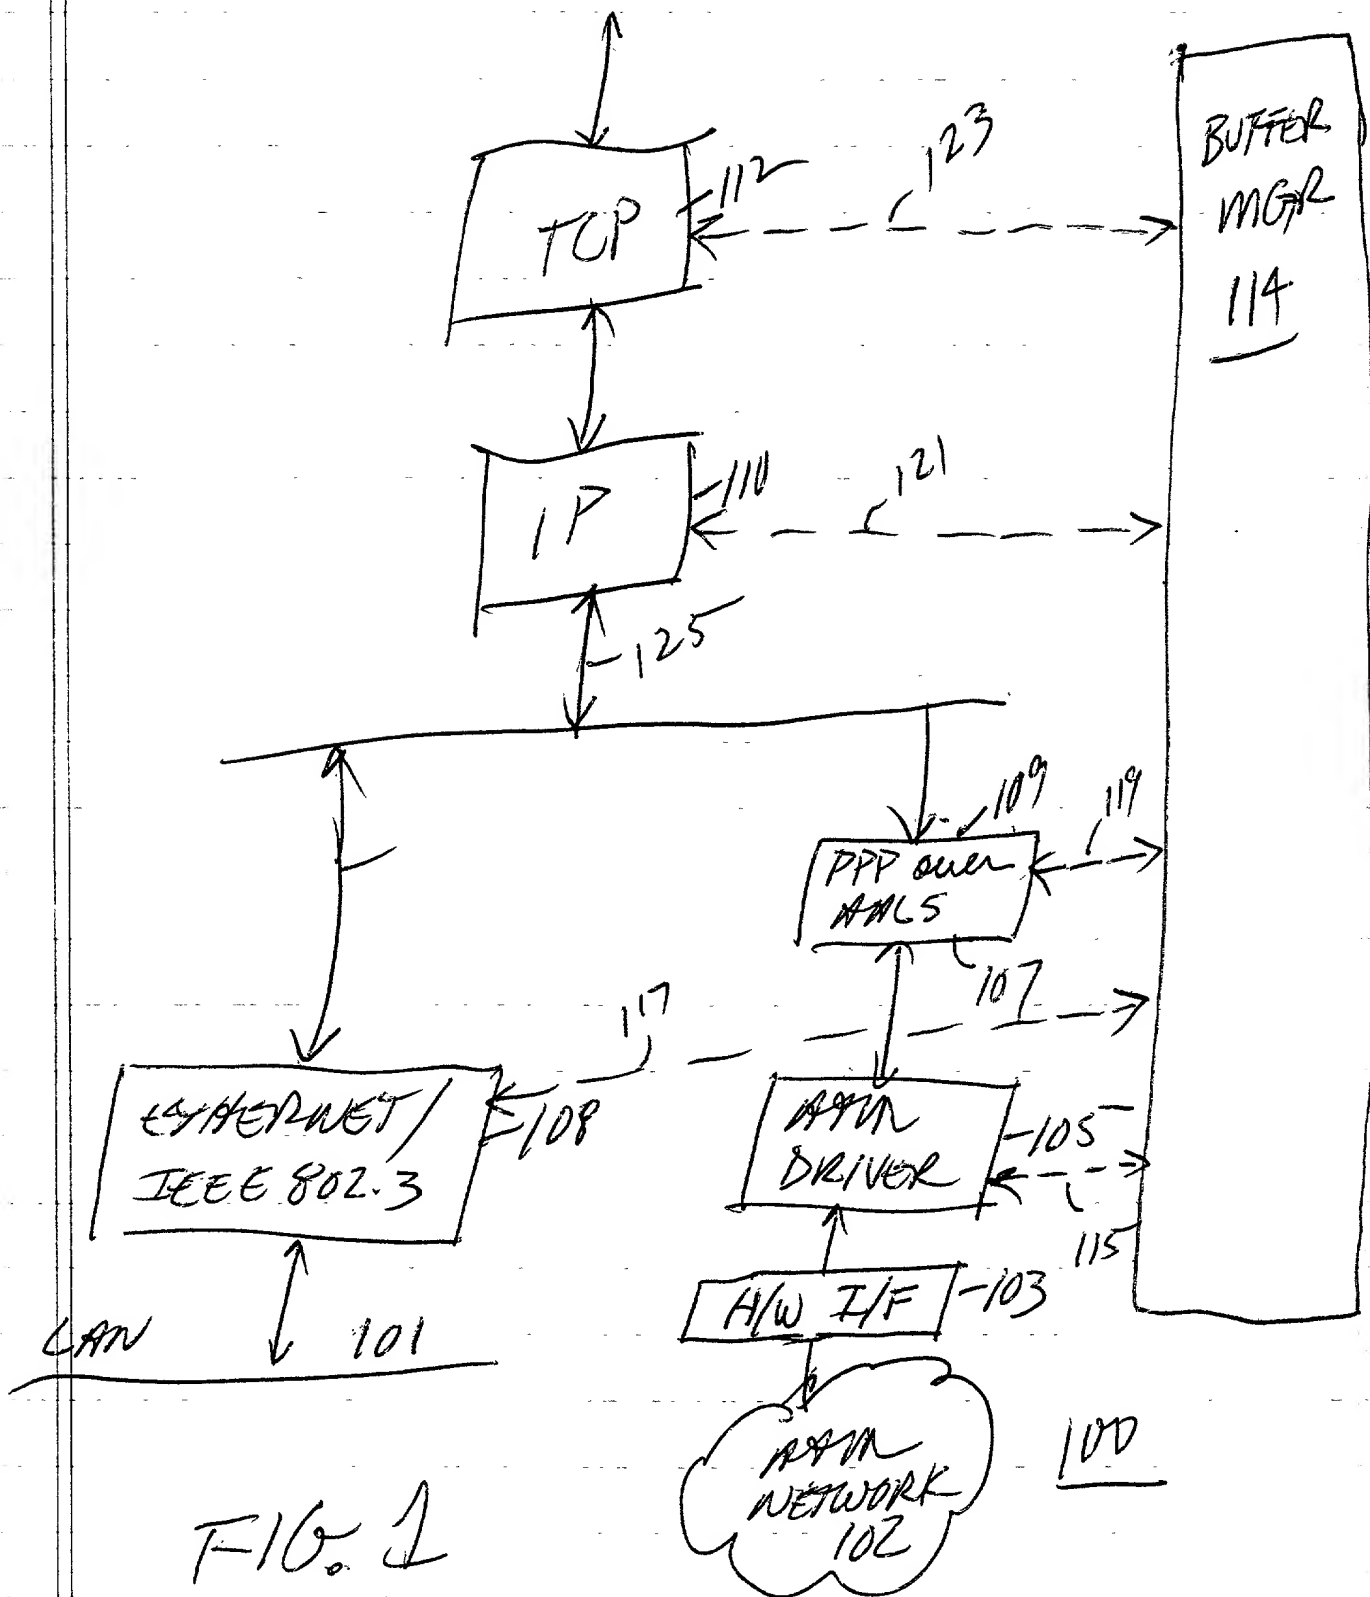 123
BUFFER
MGR
114
112
TCP
121
110
IP
125
109
119
PPP over
AAL5
107
117
ETHERNET/
IEEE 802.3
108
ATM
DRIVER
105
115
H/W I/F
103
LAN
101
ATM
NETWORK
102
100
FIG. 1